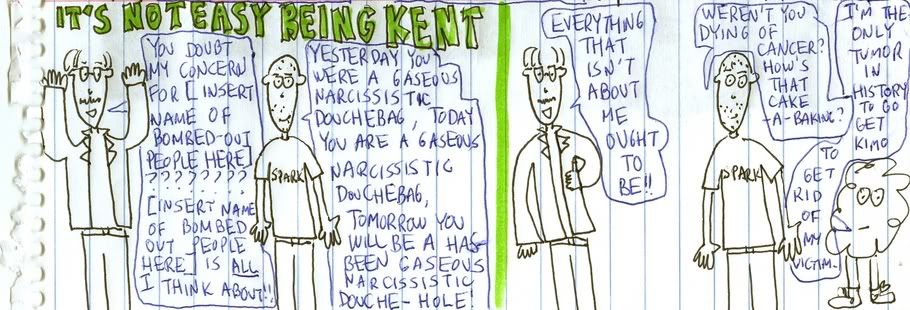 IT'S NOT EASY BEING KENT
YOU DOUBT
MY CONCERN
FOR [INSERT
NAME OF
BOMBED-OUT
PEOPLE HERE]
????????
[INSERT NAME
OF BOMBED
OUT PEOPLE
HERE] IS ALL
I THINK ABOUT!!
SPARK
YESTERDAY YOU
WERE A GASEOUS
NARCISSISTIC
DOUCHEBAG, TODAY
YOU ARE A GASEOUS
NARCISSISTIC
DOUCHEBAG,
TOMORROW YOU
WILL BE A HAS-
BEEN GASEOUS
NARCISSISTIC
DOUCHE-HOLE!
EVERYTHING
THAT
ISN'T
ABOUT
ME
OUGHT
TO
BE!!
WEREN'T YOU
DYING OF
CANCER?
HOW'S
THAT
CAKE
-A-BAKING?
SPARK
I'M THE
ONLY
TUMOR
IN
HISTORY
TO GO
GET
KIMO
TO
GET
RID
OF
MY
VICTIM-